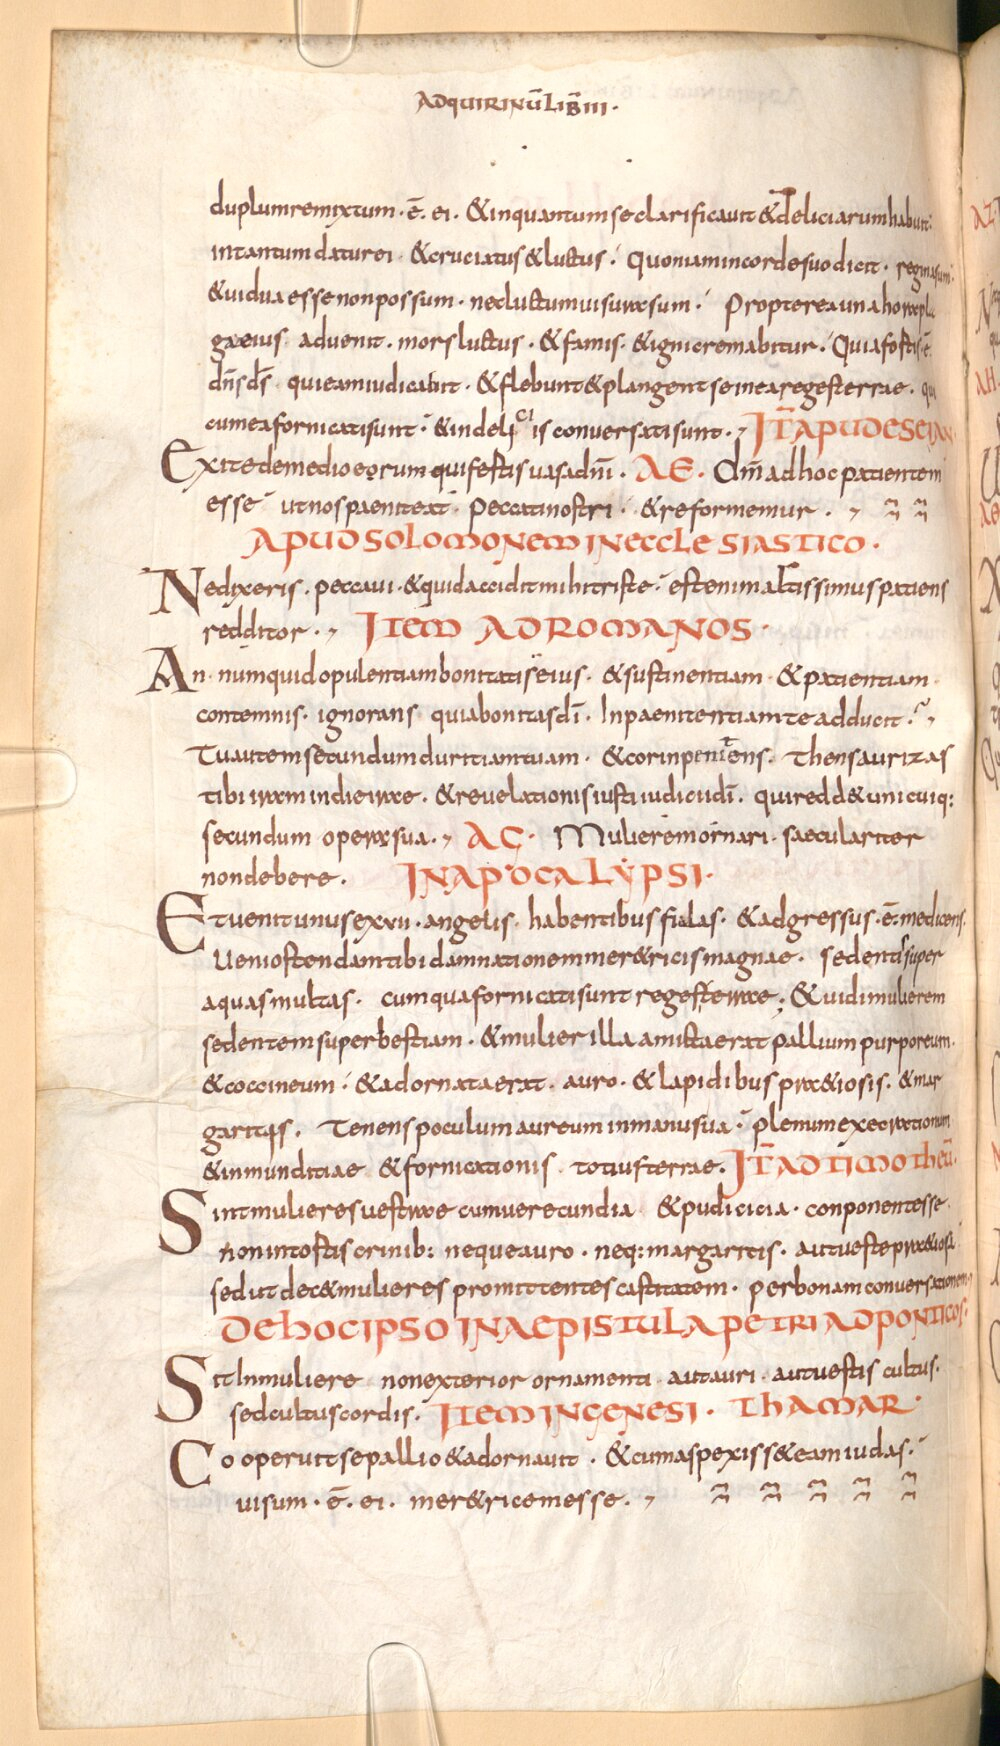 ADQUIRINŪ LIB̄ III·
duplum remixtum· ē· ei· & inquantum se clarificauit & deliciarum habuit·
intantum datur ei· & cruciatus & luctus· Quoniam in corde suo dicit· regina sum·
& uidua esse non possum· nec luctum uisura sum· Propterea una hora pla
gae eius aduenit· mors luctus· & famis· & igni cremabitur· Quia fostis ē
dn̄s ds̄ qui eam iudicabit· & flebunt & plangent se in ea reges terrae· qui
cum ea fornicati sunt· & in deliciis conversati sunt· IT̄ APUD ESEIAN
Exite de medio eorum qui festis uasa dn̄i· AE· Dn̄m ad hoc patientem
esse ut nos paeniteat· peccati nostri· & reformemur·
APUD SOLOMONEM IN ECCLESIASTICO·
Ne dixeris· peccaui· & quid accidit mihi triste· est enim altissimus patiens
redditor· ITEM AD ROMANOS·
An· numquid opulentiam bonitatis eius· & sustinentiam & patientiam
contemnis· ignorans quia bonitas dī· In paenitentiam te adducit·
Tu autem secundum duritiam tuam· & cor inpenitens· thensaurizas
tibi iram in die irae· & revelationis iusti iudicii dī· qui redd& unicuiq:
secundum opera sua· AC· Mulierem ornari· saeculariter
non debere· IN APOCALYPSI·
Et uenit unus ex vii· angelis· habentibus fialas· & adgressus· ē· me dicens·
Ueni ostendam tibi damnationem mer&ricis magnae· sedentis super
aquas multas· cum qua fornicati sunt reges terrae· & uidi mulierem
sedentem super bestiam· & mulier illa amicta erat pallium purporeum·
& coccineum· & adornata erat· auro· & lapidibus pr&iosis· & mar
garitis· Tenens poculum aureum in manu sua· plenum execrationum
& inmunditiae & fornicationis totius terrae· IT̄ AD TIMOTHEŪ·
Sint mulieres uestrae cum uerecundia & pudicicia· conponentes se·
non in tostis crinib: neque auro· neq: margaritis· aut ueste pr&iosa
sed ut dec& mulieres promittentes castitatem· per bonam conversationem·
DE HOC IPSO IN AEPISTULA PETRI AD PONTICOS·
Sit In muliere non exterior ornamenti· aut auri· aut uestis cultus·
sed cultus cordis· ITEM IN GENESI· THAMAR·
Cooperuit se pallio & adornauit· & cum aspexiss& eam iudas·
uisum· ē· ei· mer&ricem esse·